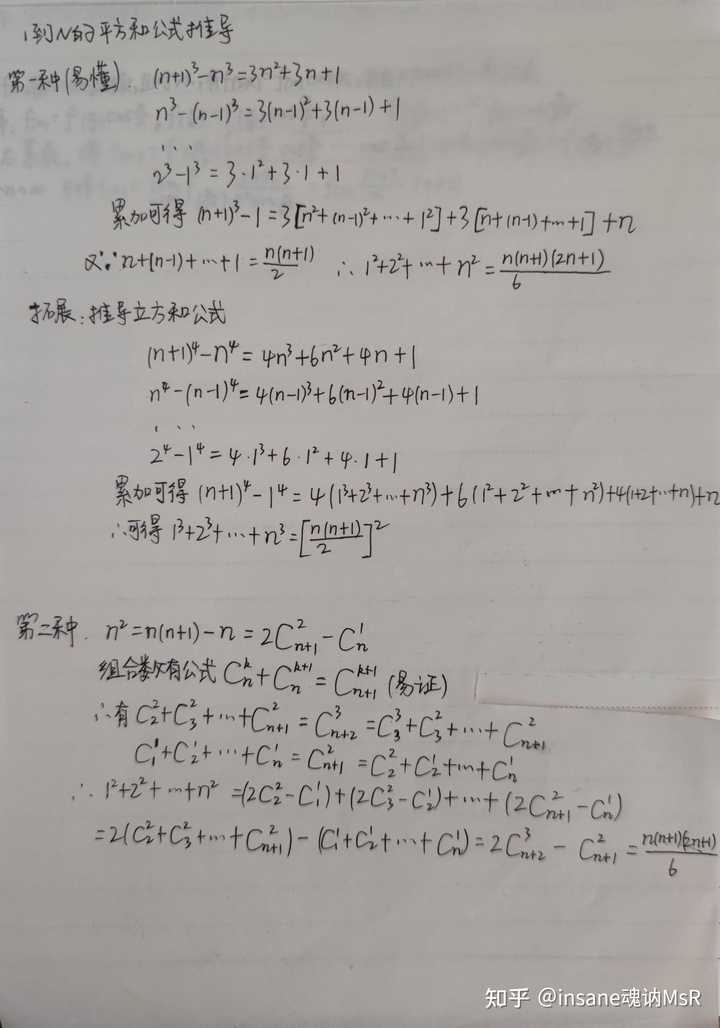 1到N的平方和公式推导
第一种(易懂). (n+1)³-n³=3n²+3n+1
n³-(n-1)³=3(n-1)²+3(n-1)+1
...
2³-1³=3·1²+3·1+1
累加可得 (n+1)³-1=3[n²+(n-1)²+…+1²]+3[n+(n-1)+…+1]+n
又∵n+(n-1)+…+1=n(n+1)/2 ∴1²+2²+…+n²=n(n+1)(2n+1)/6
拓展:推导立方和公式
(n+1)⁴-n⁴=4n³+6n²+4n+1
n⁴-(n-1)⁴=4(n-1)³+6(n-1)²+4(n-1)+1
...
2⁴-1⁴=4·1³+6·1²+4·1+1
累加可得 (n+1)⁴-1⁴=4(1³+2³+…+n³)+6(1²+2²+…+n²)+4(1+2+…+n)+n
∴可得 1³+2³+…+n³=[n(n+1)/2]²
第二种. n²=n(n+1)-n=2C_{n+1}^2-C_n^1
组合数有公式 C_n^k+C_n^{k+1}=C_{n+1}^{k+1} (易证)
∴有 C_2^2+C_3^2+…+C_{n+1}^2=C_{n+2}^3=C_3^3+C_3^2+…+C_{n+1}^2
C_1^1+C_2^1+…+C_n^1=C_{n+1}^2=C_2^2+C_2^1+…+C_n^1
∴1²+2²+…+n²=(2C_2^2-C_1^1)+(2C_3^2-C_2^1)+…+(2C_{n+1}^2-C_n^1)
=2(C_2^2+C_3^2+…+C_{n+1}^2)-(C_1^1+C_2^1+…+C_n^1)=2C_{n+2}^3-C_{n+1}^2=n(n+1)(2n+1)/6
知乎 @insane魂讷MsR